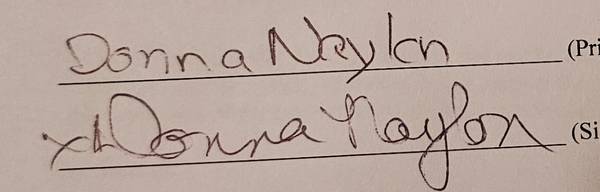 Donna Naylon (Pri
x Donna Naylon (Si